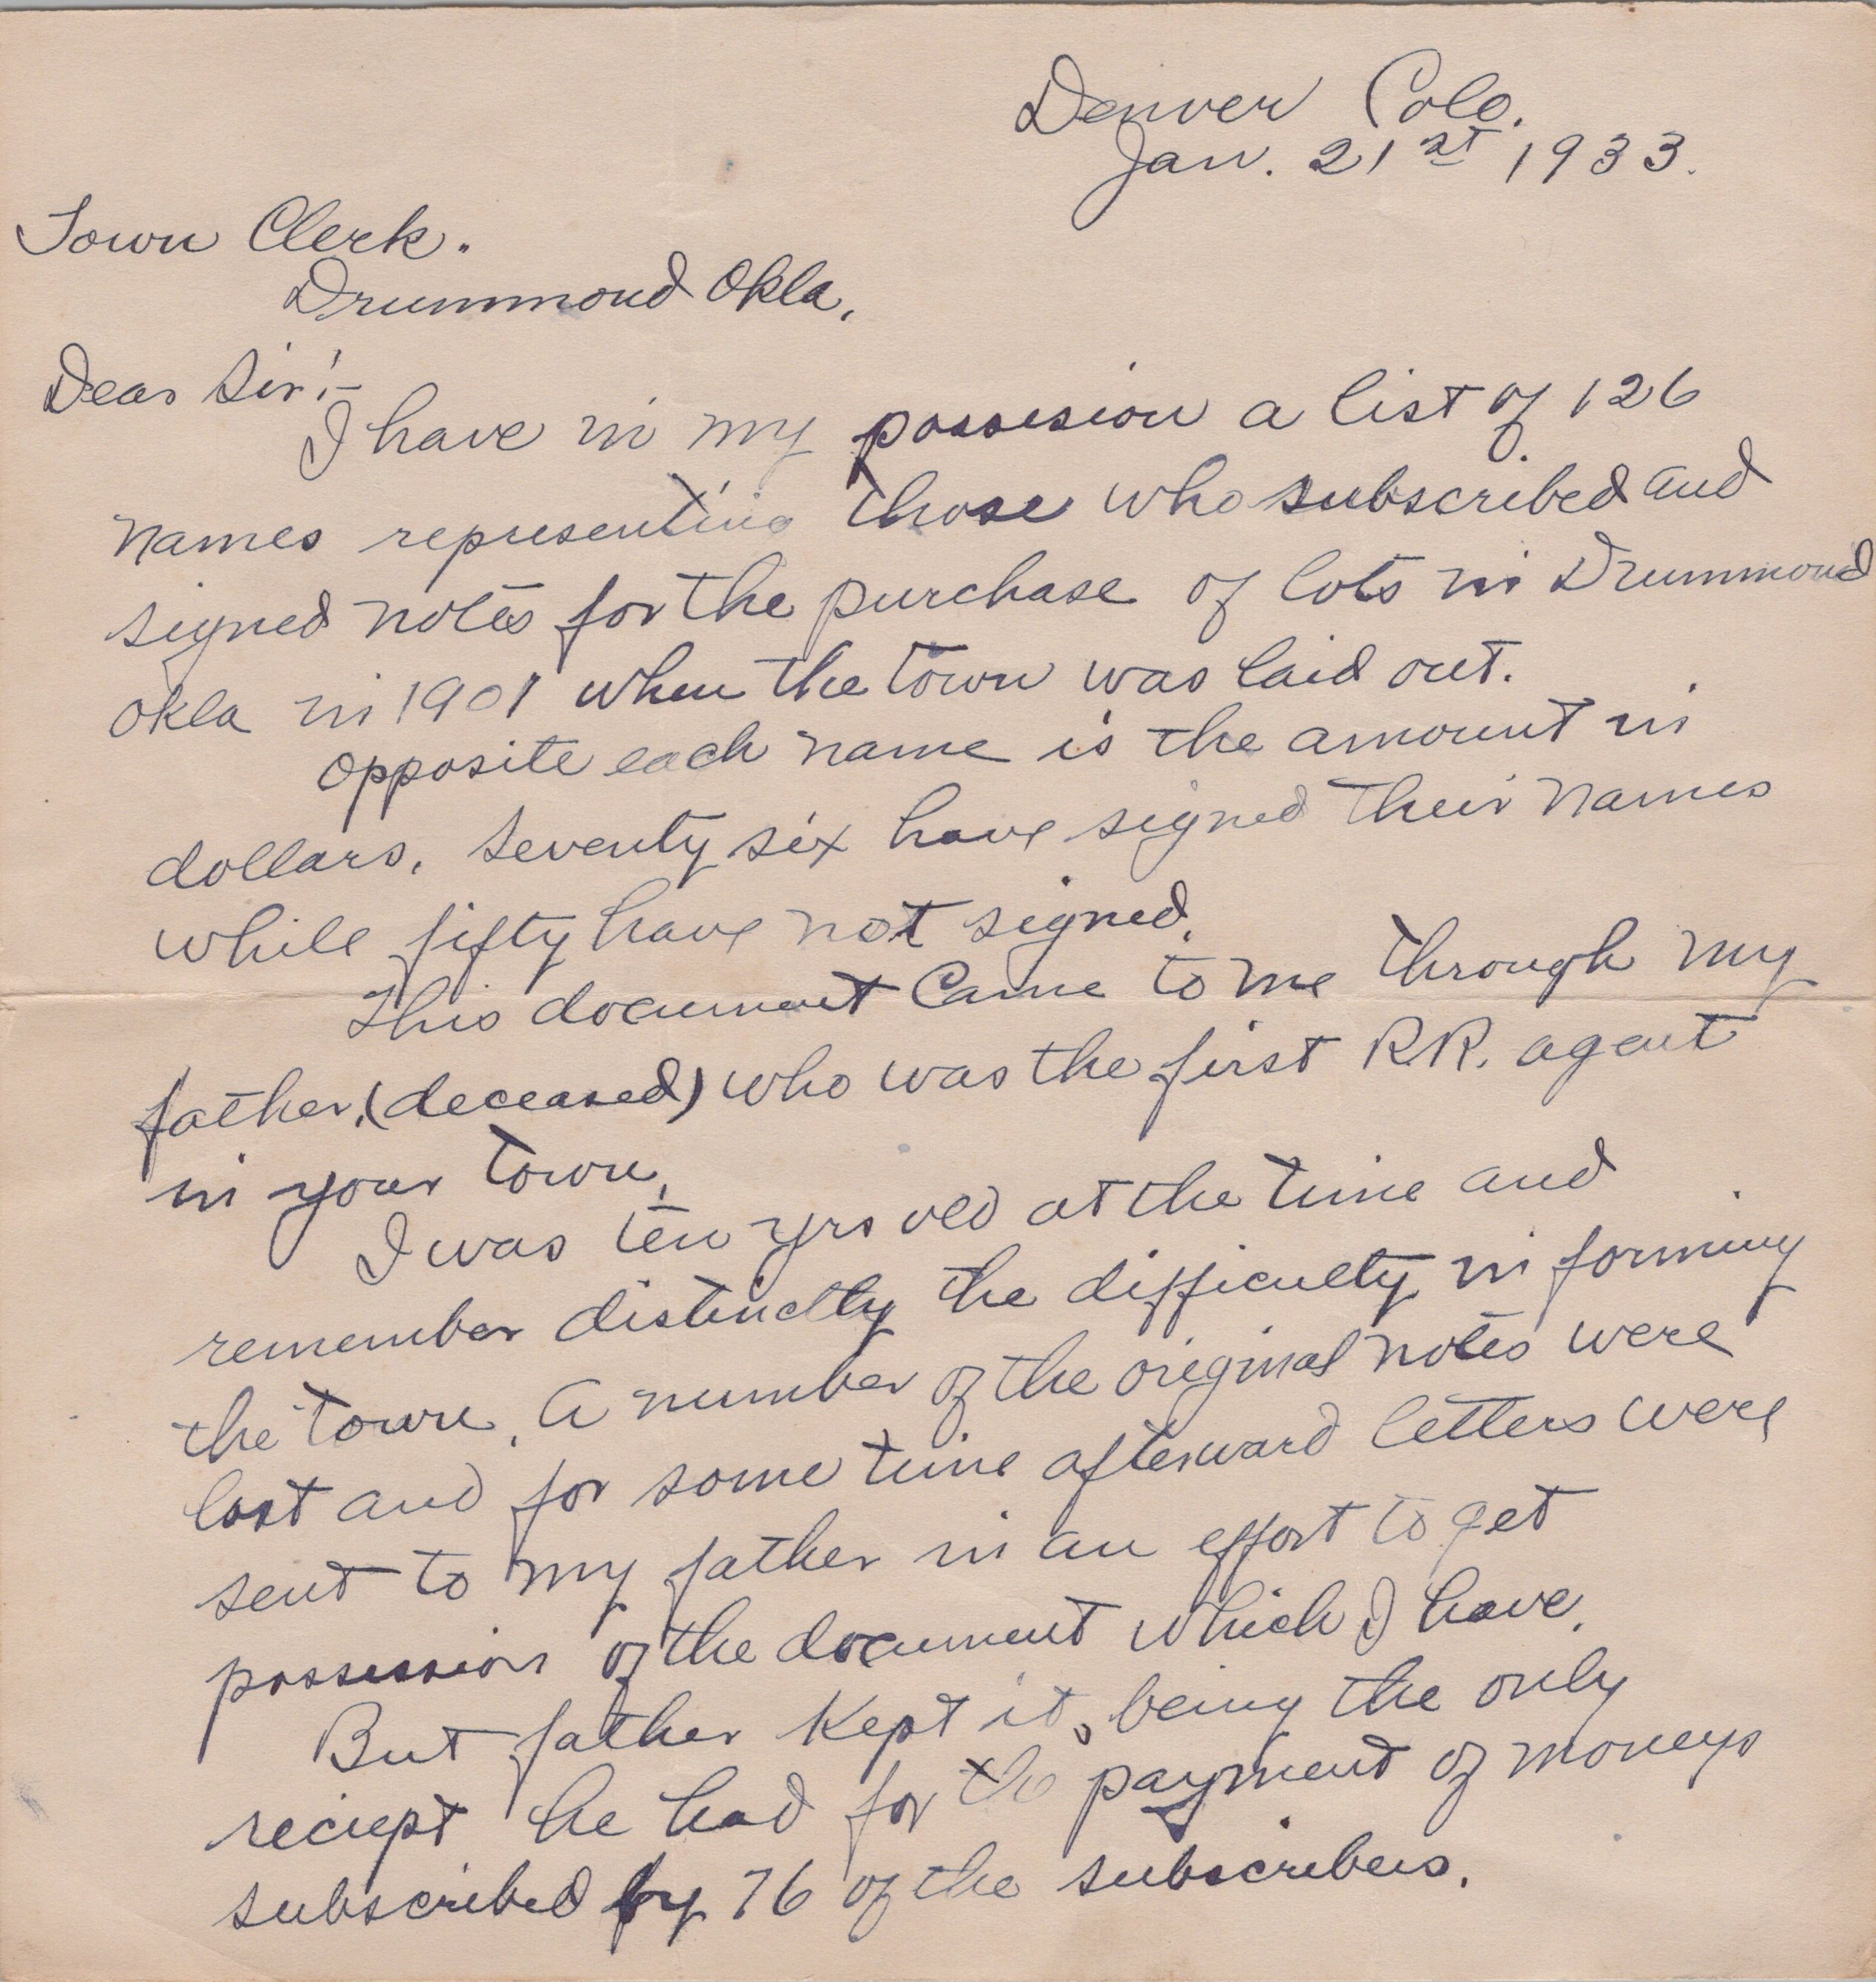 Denver Colo.
Jan. 21st 1933.
Town Clerk.
Drummond Okla.
Dear Sir:-
I have in my possesion a list of 126
names representing those who subscribed and
signed notes for the purchase of lots in Drummond
Okla in 1901 when the town was laid out.
Opposite each name is the amount in
dollars. Seventy six have signed their names
while fifty have not signed.
This document came to me through my
father, (deceased) who was the first RR. agent
in your town.
I was ten yrs old at the time and
remember distinctly the difficulty in forming
the town. A number of the original notes were
lost and for some time afterward letters were
sent to my father in an effort to get
possession of the document which I have.
But father kept it, being the only
reciept he had for the payment of moneys
subscribed by 76 of the subscribers.